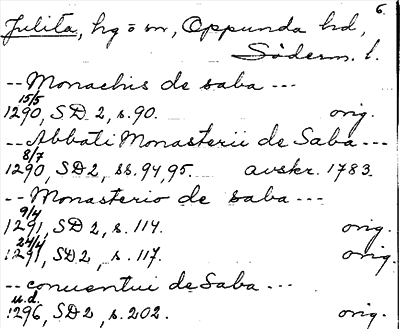 6.
Julita, hg o sn, Oppunda hd,
Söderm. l.
-- Monachis de saba ---
15/5
1290, SD. 2, s. 90. orig.
-- Abbati Monasterii de Saba ---
8/7
1290, SD 2, ss. 94, 95. avskr. 1783.
-- Monasterio de saba ---
9/4
1291, SD 2, s. 114. orig.
24/4
1291, SD. 2, s. 117. orig.
-- conuentui de Saba ---
u.d.
1296, SD 2, s. 202. orig.